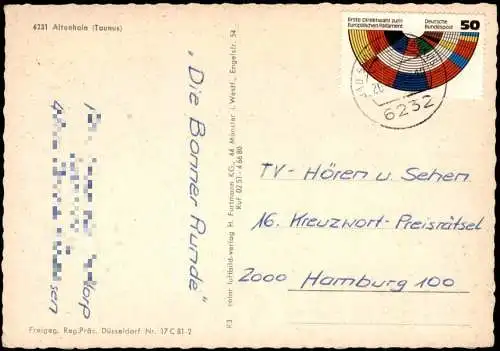 6231 Altenhain (Taunus)
„Die Bonner Runde"
Freigeg. Reg. Präs. Düsseldorf Nr. 17 C 81-2
color luftbild-verlag H. Fortmann KG., 44 Münster i. Westf., Engelstr. 54
Ruf 02 51-4 66 80
Erste Direktwahl zum
Europäischen Parlament
Deutsche
Bundespost
50
6232
TV- Hören u. Sehen
16. Kreuzwort-Preisrätsel
2000 Hamburg 100